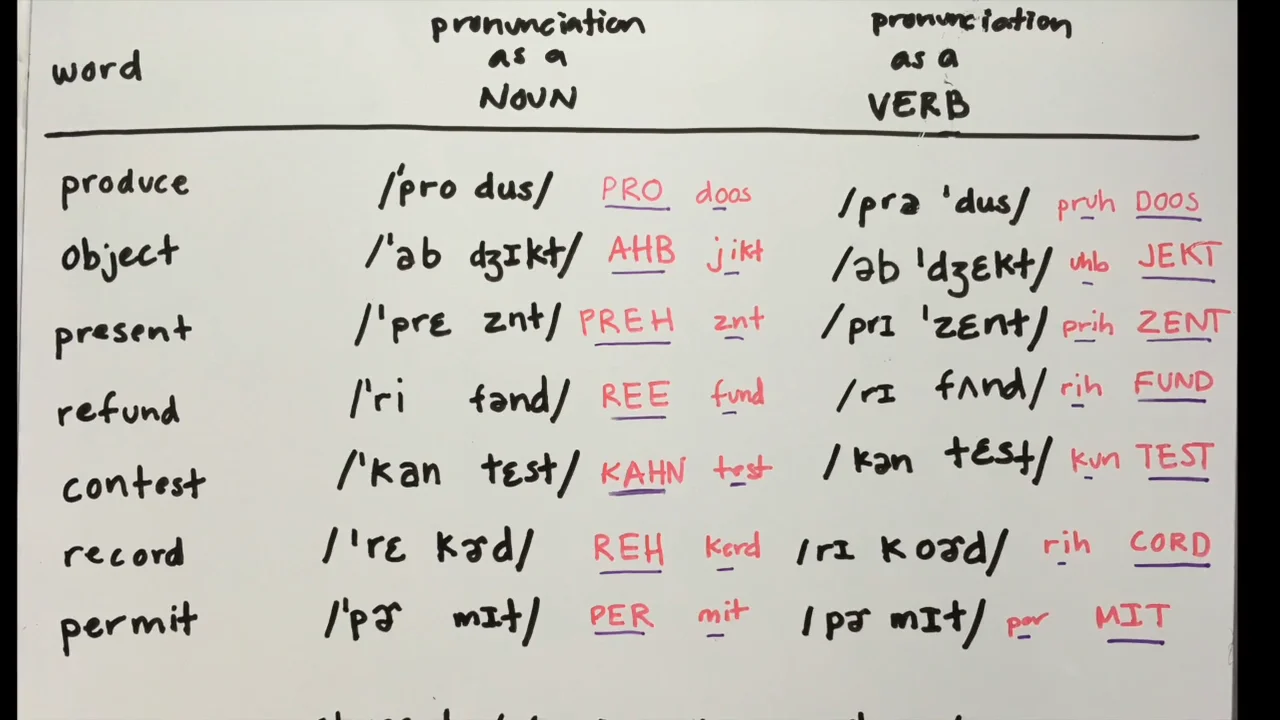 pronunciation as a NOUN
pronunciation as a VERB
word
produce /ˈpro dus/ PRO doos /prə ˈdus/ pruh DOOS
object /ˈəb dʒɪkt/ AHB jikt /əb ˈdʒɛkt/ uhb JEKT
present /ˈprɛ znt/ PREH znt /prɪ ˈzɛnt/ prih ZENT
refund /ˈri fənd/ REE fund /rɪ fʌnd/ rih FUND
contest /ˈkən tɛst/ KAHN test /kən tɛst/ kun TEST
record /ˈrɛ kɚd/ REH kerd /rɪ koɚd/ rih CORD
permit /ˈpɚ mɪt/ PER mit /pɚ mɪt/ per MIT